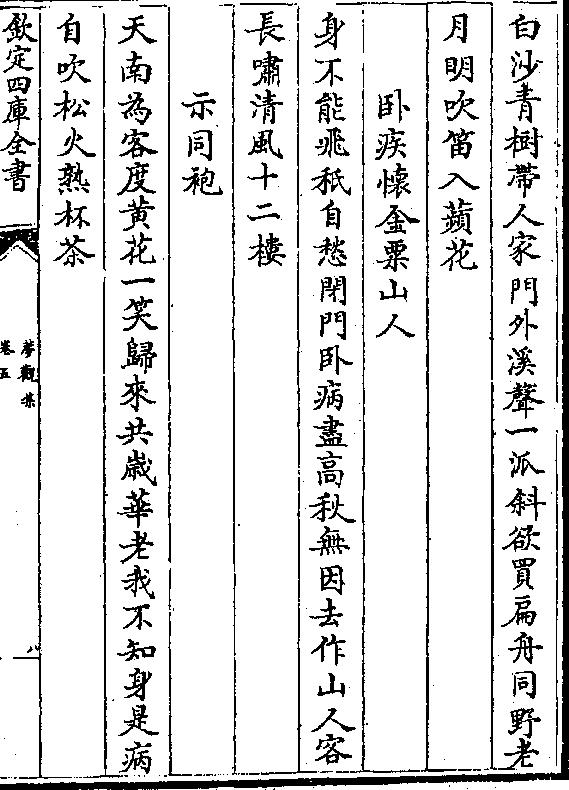 白沙青樹帶人家門外溪聲一派斜欲買扁舟同野老
月明吹笛入蘋花
卧疾懷金粟山人
身不能飛秪自愁閉門卧病盡高秋無因去作山人客
長嘯清風十二樓
示同袍
天南為客度黃花一笑歸來共歲華老我不知身是病
自吹松火熟杯茶
欽定四庫全書
夢觀集
卷五
八